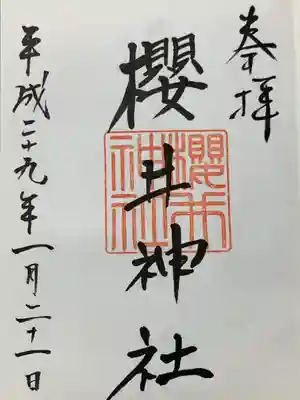 奉拝
櫻井神社
櫻井神社
平成二十九年一月二十一日